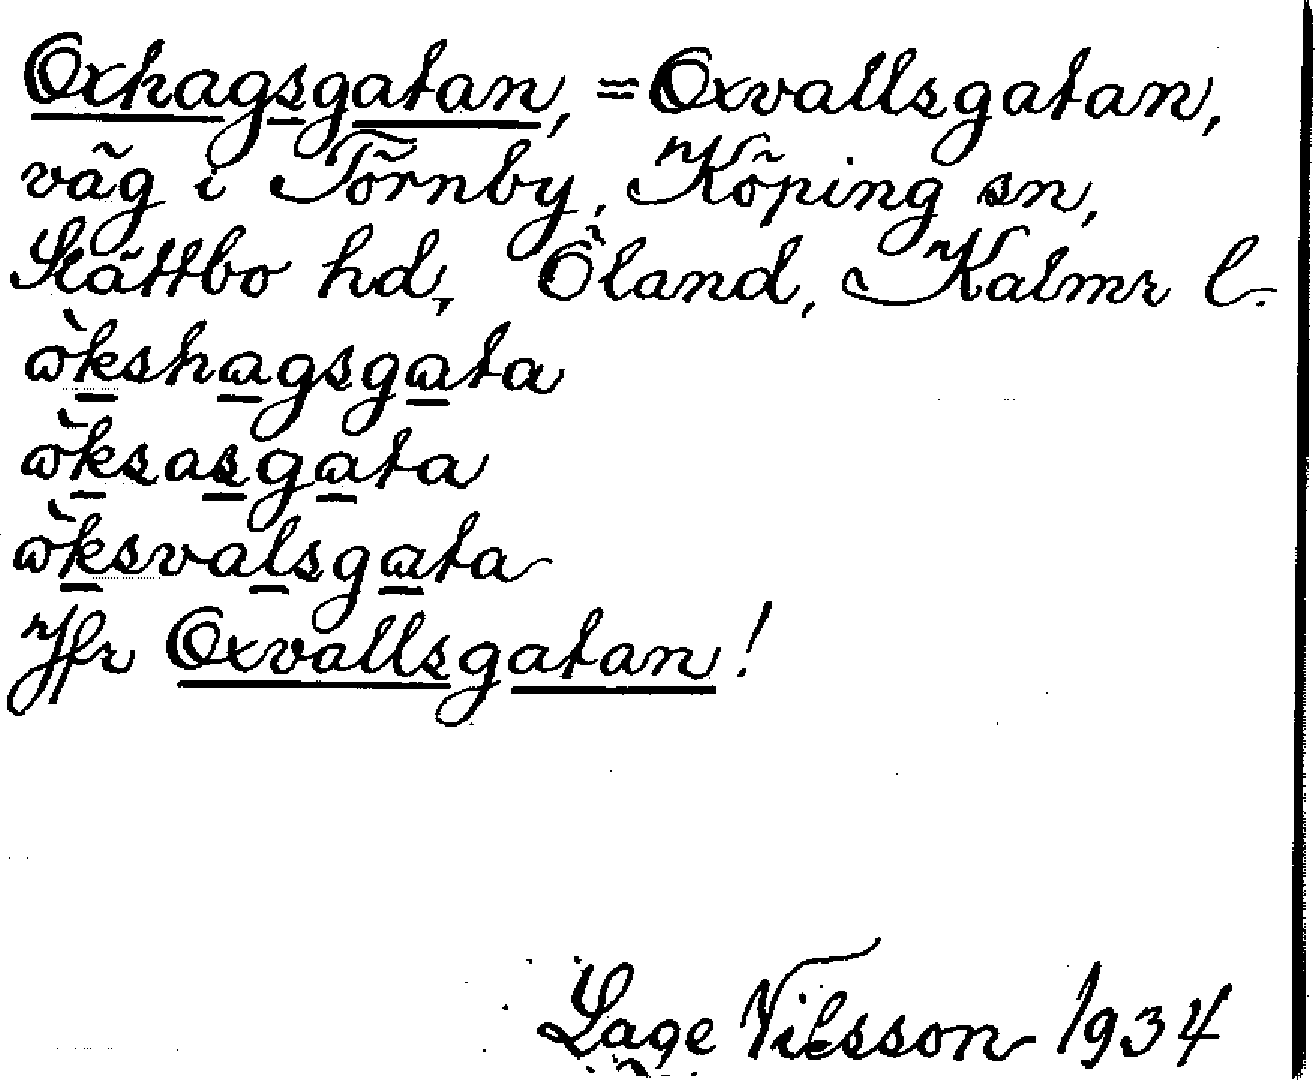 Oxhagsgatan, = Oxvallsgatan,
väg i Törnby, Köping sn,
Slättbo hd, Öland, Kalmr l.
ò̀kshagsgata
ò̀ksasgata
ò̀ksvalsgata
Jfr Oxvallsgatan!
Lage Nilsson 1934